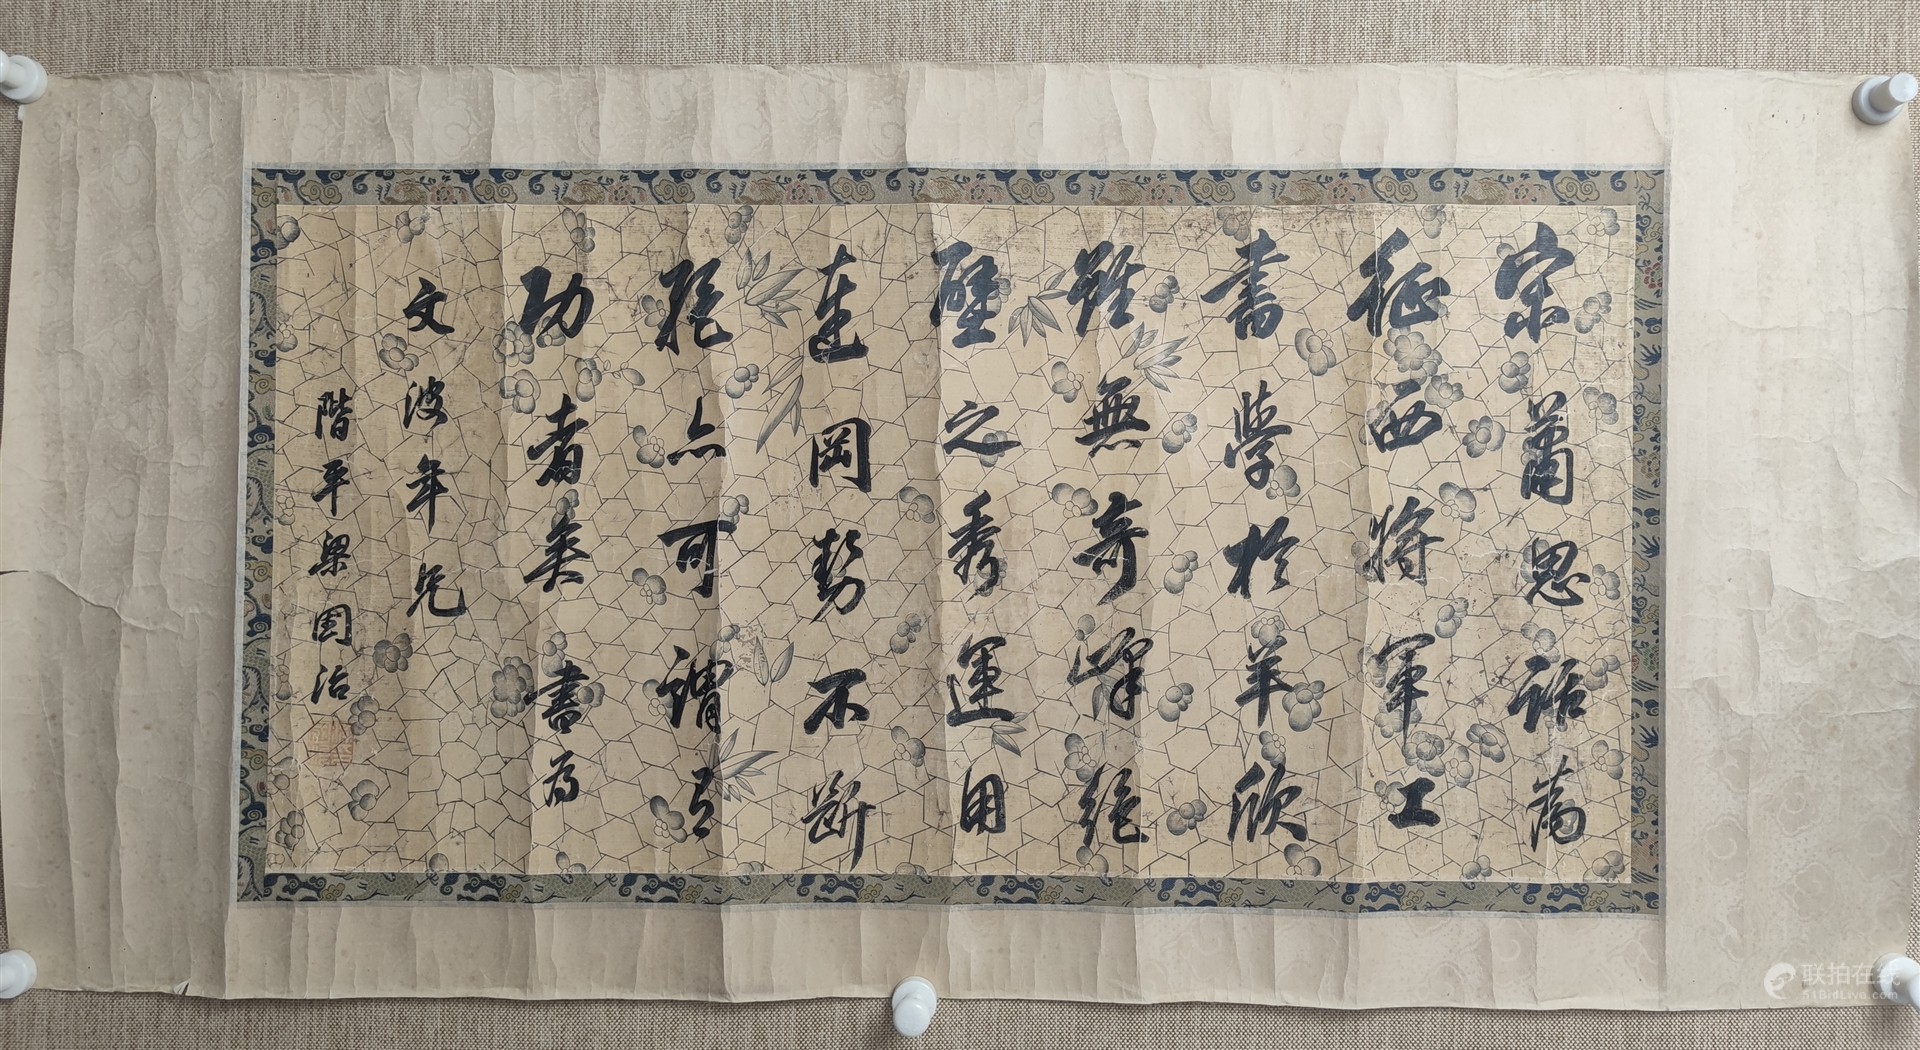 宗蕭思話為
征西將軍工
書學於羊欣
雖無奇峰絕
壁之秀運用
連岡勢不斷
絕亦可謂有
功者矣書為
文波年兄
階平梁國治
联拍在线
51BidLive.com